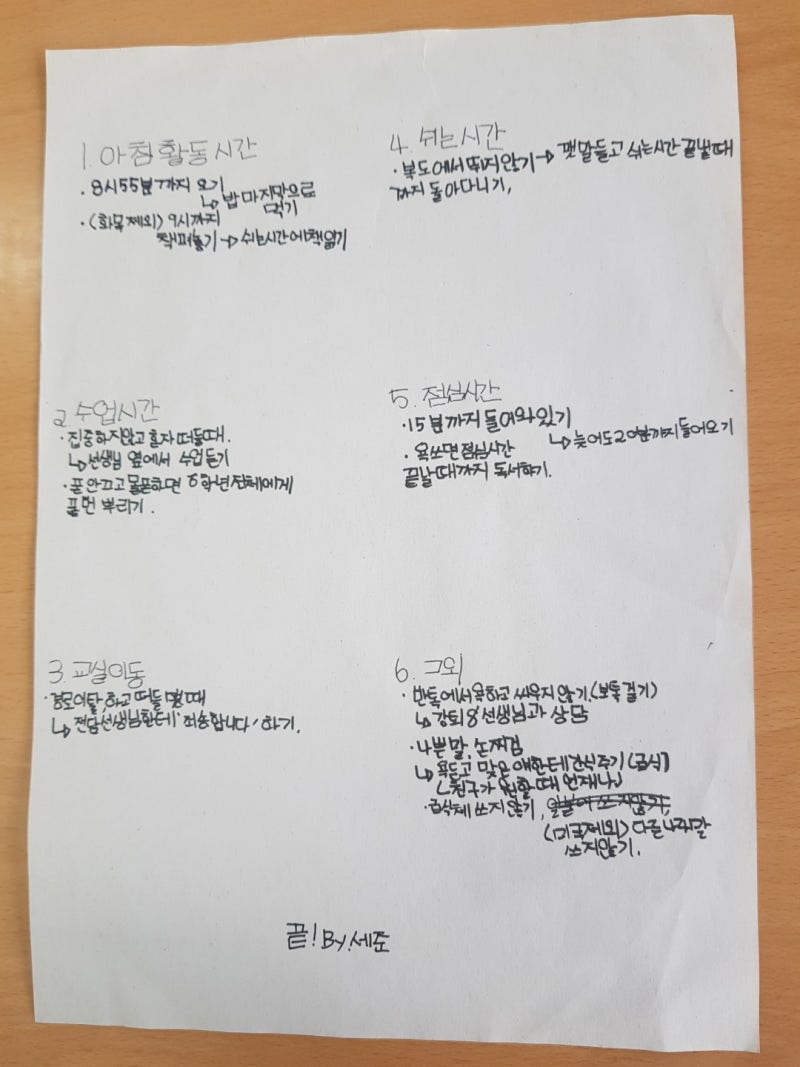 1. 아침 활동 시간
· 8시 55분 까지 오기
↳ 밥 마지막으로
먹기
· (화목 제외) 9시까지
책펴놓기 → 쉬는시간에 책 읽기
2. 수업시간
· 집중하지않고 혼자 떠들때.
↳ 선생님 옆에서 수업 듣기
· 폰 안끄고 몰폰하면 6학년 전체에게
폰번 뿌리기.
3. 교실이동
· 경로이탈 하고 떠들 명 때
↳ 전담선생님한테 '죄송합니다' 하기.
4. 쉬는 시간
· 복도에서 뛰지 않기 → 팻말들고 쉬는시간 끝날때
까지 돌아다니기,
5. 점심시간
· 15분까지 들어와있기
↳ 늦어도 20분까지 들어오기
· 욕쓰면 점심시간
끝날때까지 독서하기.
6. 그외
· 반톡에서 욕하고 싸우지 않기. (보톡 걸기)
↳ 강퇴 & 선생님과 상담
· 나쁜말, 손찌검
↳ 욕듣고 맞은 애한테 간식주기 (급식)
↳ 친구가 원할 때 언제나
· 급식체 쓰지않기, 일본어 쓰지않기,
(미국제외) 다른나라말
쓰지않기.
끝! By.세준